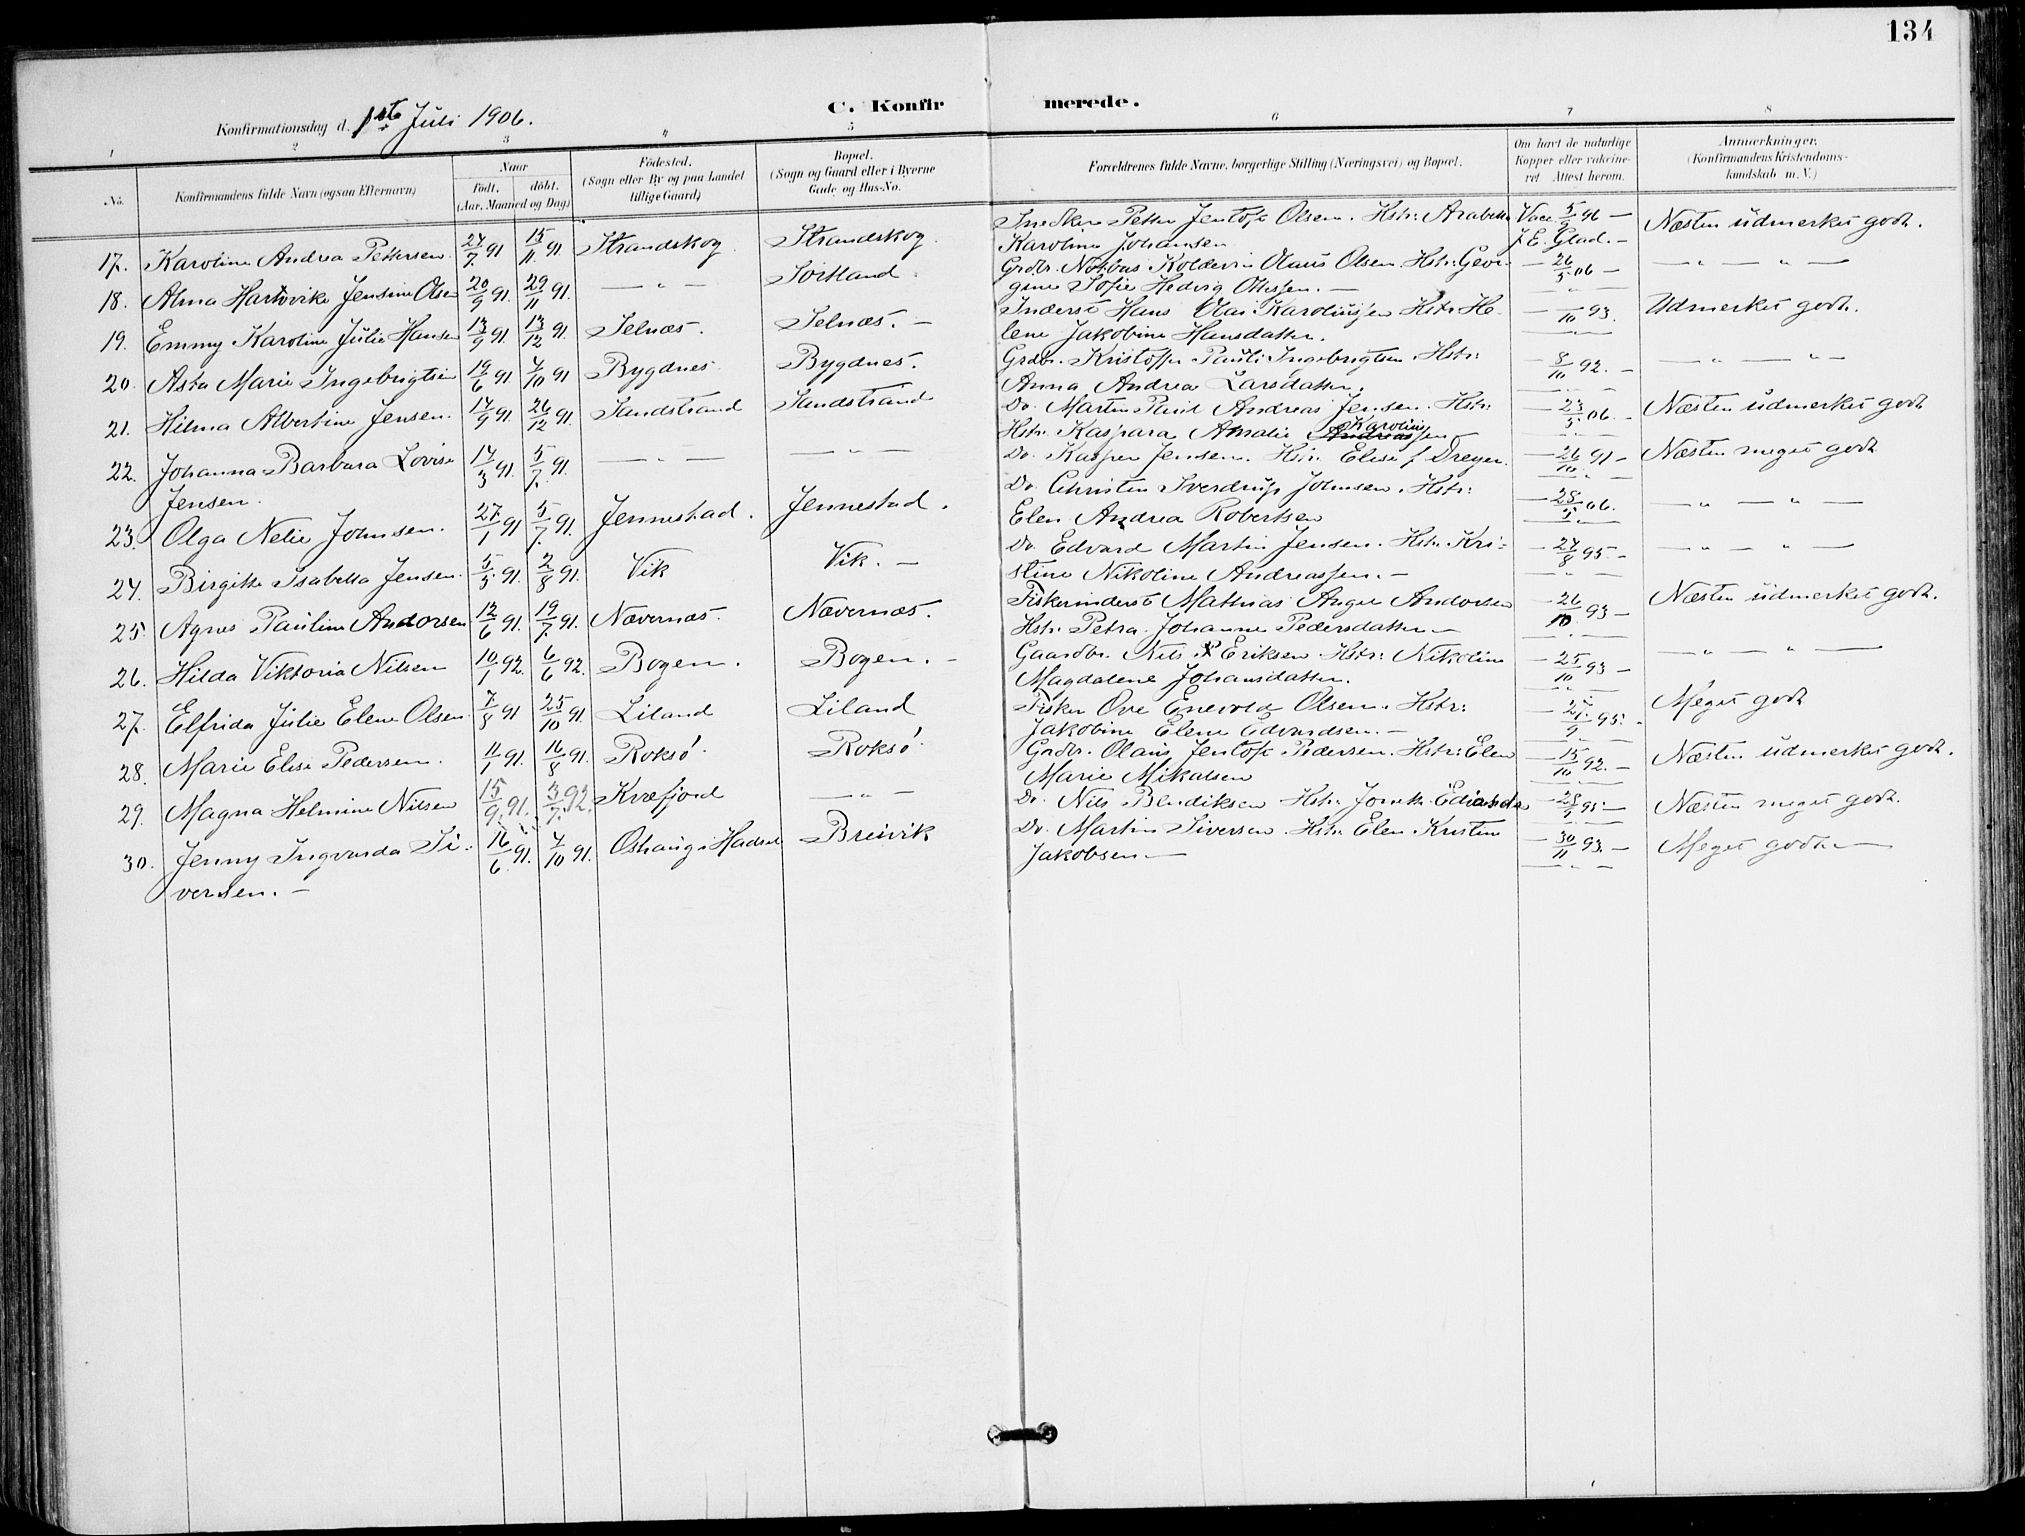 134
C. Konfirmerede.
Konfirmationsdag d. 1ste Juli 1906.
1 2 3 4 5 6 7 8
No. Konfirmandens fulde Navn (ogsaa Efternavn) Naar født, døbt. (Aar, Maaned og Dag) Fødested. (Sogn eller By og paa Landet tillige Gaard) Bopæl. (Sogn og Gaard eller i Byerne Gade og Hus-No. Forældrenes fulde Navne, borgerlige Stilling (Næringsvei) og Bopæl. Om havt de naturlige Kopper eller vaccineret. Attest herom. Anmærkninger. (Konfirmandens Kristendomskundskab m. V.)
17. Karoline Andrea Pettersen 24/7 91 15/11 91. Strandskog Strandskog Snedker Petter Jentoft Olsen. Hstr. Arabella Vacc. 5/9 96 — Næsten udmerket godt.
Karoline Johansen J. E. Glad. —
18. Alma Hartvike Jensine Olsen 20/9 91. 29/11 91. — " — Sortland Grdbr. Norbus Koldevin Olaus Olsen. Hstr: Geor- — 26/5 06 — — " — " —
gine Sofie Hedvig Olissen. — — " —
19. Emmy Karoline Julie Hansen 13/9 91. 13/12 91. Selnæs. Selnæs. — Inderst Hans Olai Karoliussen Hstr: He- — /10 93. Udmerket godt.
lene Jakobine Hansdatter.
20. Asta Marie Ingebrigtsen 19/6 91 4/10 91 Bygdnes Bygdnes. Grdbr. Kristoffer Pauli Ingebrigtsen. Hstr: — 8/10 92. — — " — " —
Anna Andrea Larsdatter.
21. Hilma Albertine Jensen. 17/9 91. 26/12 91. Sandstrand Sandstrand Do. Martin Paul Andreas Jensen. Hstr: — 23/5 06. — Næsten udmerket godt
Hstr. Kaspara Amalie Karoliussen
22. Johanna Barbara Lovise 17/3 91. 5/7 91. — " — — " — Do. Kasper Jensen. Hstr. Elise f. Dreyer. — 26/10 91 — Næsten meget godt
Jensen.
23. Olga Nelie Johnsen. 27/1 91 5/7 91. Jennestad. Jennestad. Do. Christen Sverdrup Johnsen. Hstr: — 28/5 06. — " — " —
Elen Andrea Robertsen
24. Birgitte Isabella Jensen. 5/5 91. 2/8 91. Vik Vik. — Do. Edvard Martin Jensen. Hstr. Kri- — 24/8 95 — — " — " —
stine Nikoline Andreassen. — — " —
25. Agnes Pauline Andorsen 12/6 91. 19/7 91. Nævernæs. Nævernæs. Fiskerinderst Mathias Angel Andorsen — 26/10 93 — Næsten udmerket godt.
Hstr. Petra Johanne Pedersdatter —
26. Hilda Viktoria Nilsen 10/1 92. 6/6 92. Bogen. Bogen. — Gaardbr. Nils P Eriksen Hstr: Nikoline — 25/10 93 — — " — " —
Magdalene Johansdatter.
27. Elfrida Julie Elene Olsen 7/8 91 25/10 91. Liland Liland Fisker Ove Enevold Olsen. Hstr: — 27/9 95. Meget godt
Jakobine Elene Edvardsen. —
28. Marie Elise Pedersen. 11/1 91. 16/8 91. Roksö. Roksö. Grdbr. Olaus Jentoft Pedersen. Hstr: Elen — 15/10 92. — Næsten udmerket godt.
Marie Mikalsen
29. Magna Helmine Nilsen 15/9 91. 3/7 92. Kvæfjord — " — Do. Nils Bendiksen Hstr. — 95 — Næsten meget godt.
30. Jenny Ingvarda Si- 16/6 91. 4/10 91. Hadsel Breivik Do. Martin Siversen. Hstr: Elen Kristine — 30/11 93. — Meget godt. —
versen. — Jakobsen — — " —